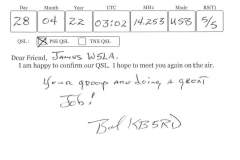 Day Month Year UTC MHz Mode RS(T)
28 04 22 03:02 14.253 USB 5/5
QSL: ☒ PSE QSL ☐ TNX QSL
Dear Friend, James W5LA.
I am happy to confirm our QSL. I hope to meet you again on the air.
Your group are doing a great
Job!
Bill KB5RD